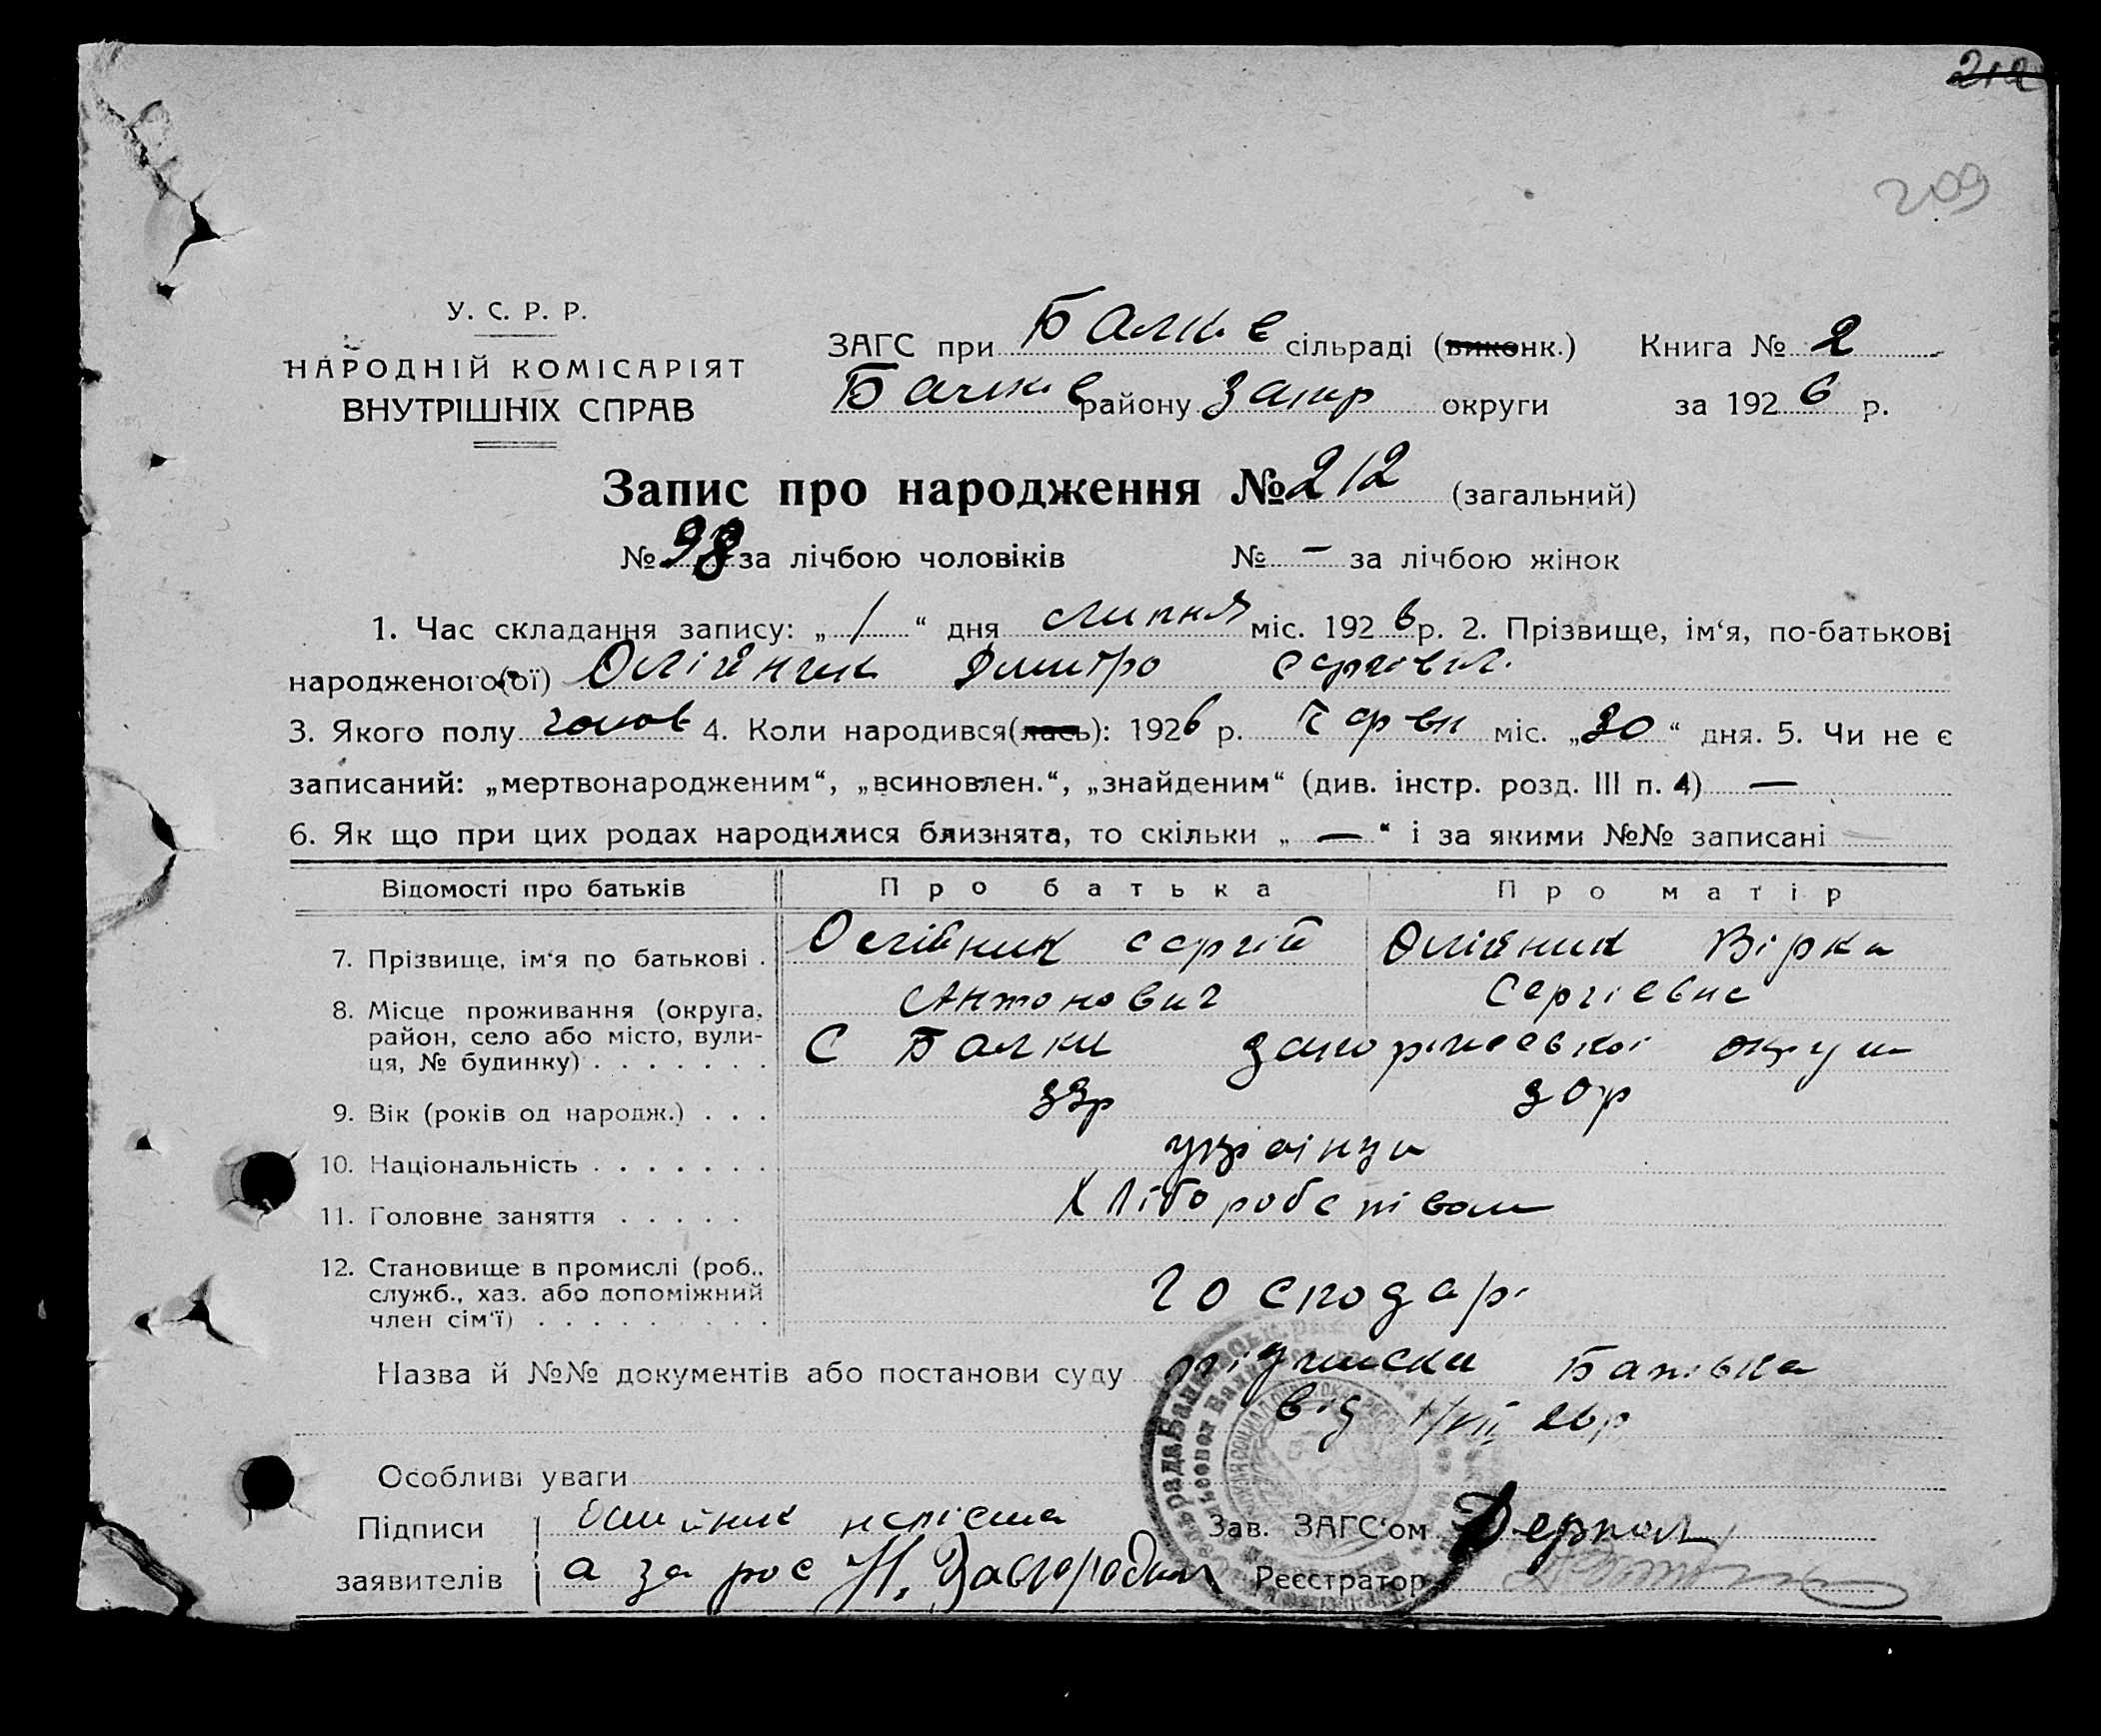 212
209
У. С. Р. Р.
НАРОДНІЙ КОМІСАРІЯТ
ВНУТРІШНІХ СПРАВ
ЗАГС при Балкіє сільраді (виконк.) Книга № 2
району Запр округи за 1926 р.
Запис про народження № 212 (загальний)
№ 98 за лічбою чоловіків № — за лічбою жінок
1. Час складання запису: „ 1 “ дня липня міс. 1926 р. 2. Прізвище, ім‘я, по-батькові
народженого(ої) Олійник Дмитро Сергієвич
3. Якого полу чолов 4. Коли народився(лась): 1926 р. Червн міс. „30“ дня. 5. Чи не є
записаний: „мертвонародженим“, „всиновлен.“, „знайденим“ (див. інстр. розд. III п. 4) —
6. Як що при цих родах народилися близнята, то скільки „ — “ і за якими №№ записані —
Відомості про батьків Про батька Про матір
7. Прізвище, ім‘я по батькові . Олійник Сергій Олійник Вірка
Антонович Сергієвна
8. Місце проживання (округа, район, село або місто, вулиця, № будинку) . . . . . . . С Балки Запоріжсвької округи
9. Вік (років од народж.) . . . 33р 30р
10. Національність . . . . . . . українці
11. Головне заняття . . . . . Хліборобством
12. Становище в промислі (роб., служб., хаз. або допоміжний член сім‘ї) . . . . . . . . . господарі
Назва й №№ документів або постанови суду підписки Батька
від 1/VII 26р
Особливі уваги
Підписи заявителів Олійник
а за рос Н. Завгородній
Зав. ЗАГС‘ом
Реєстратор